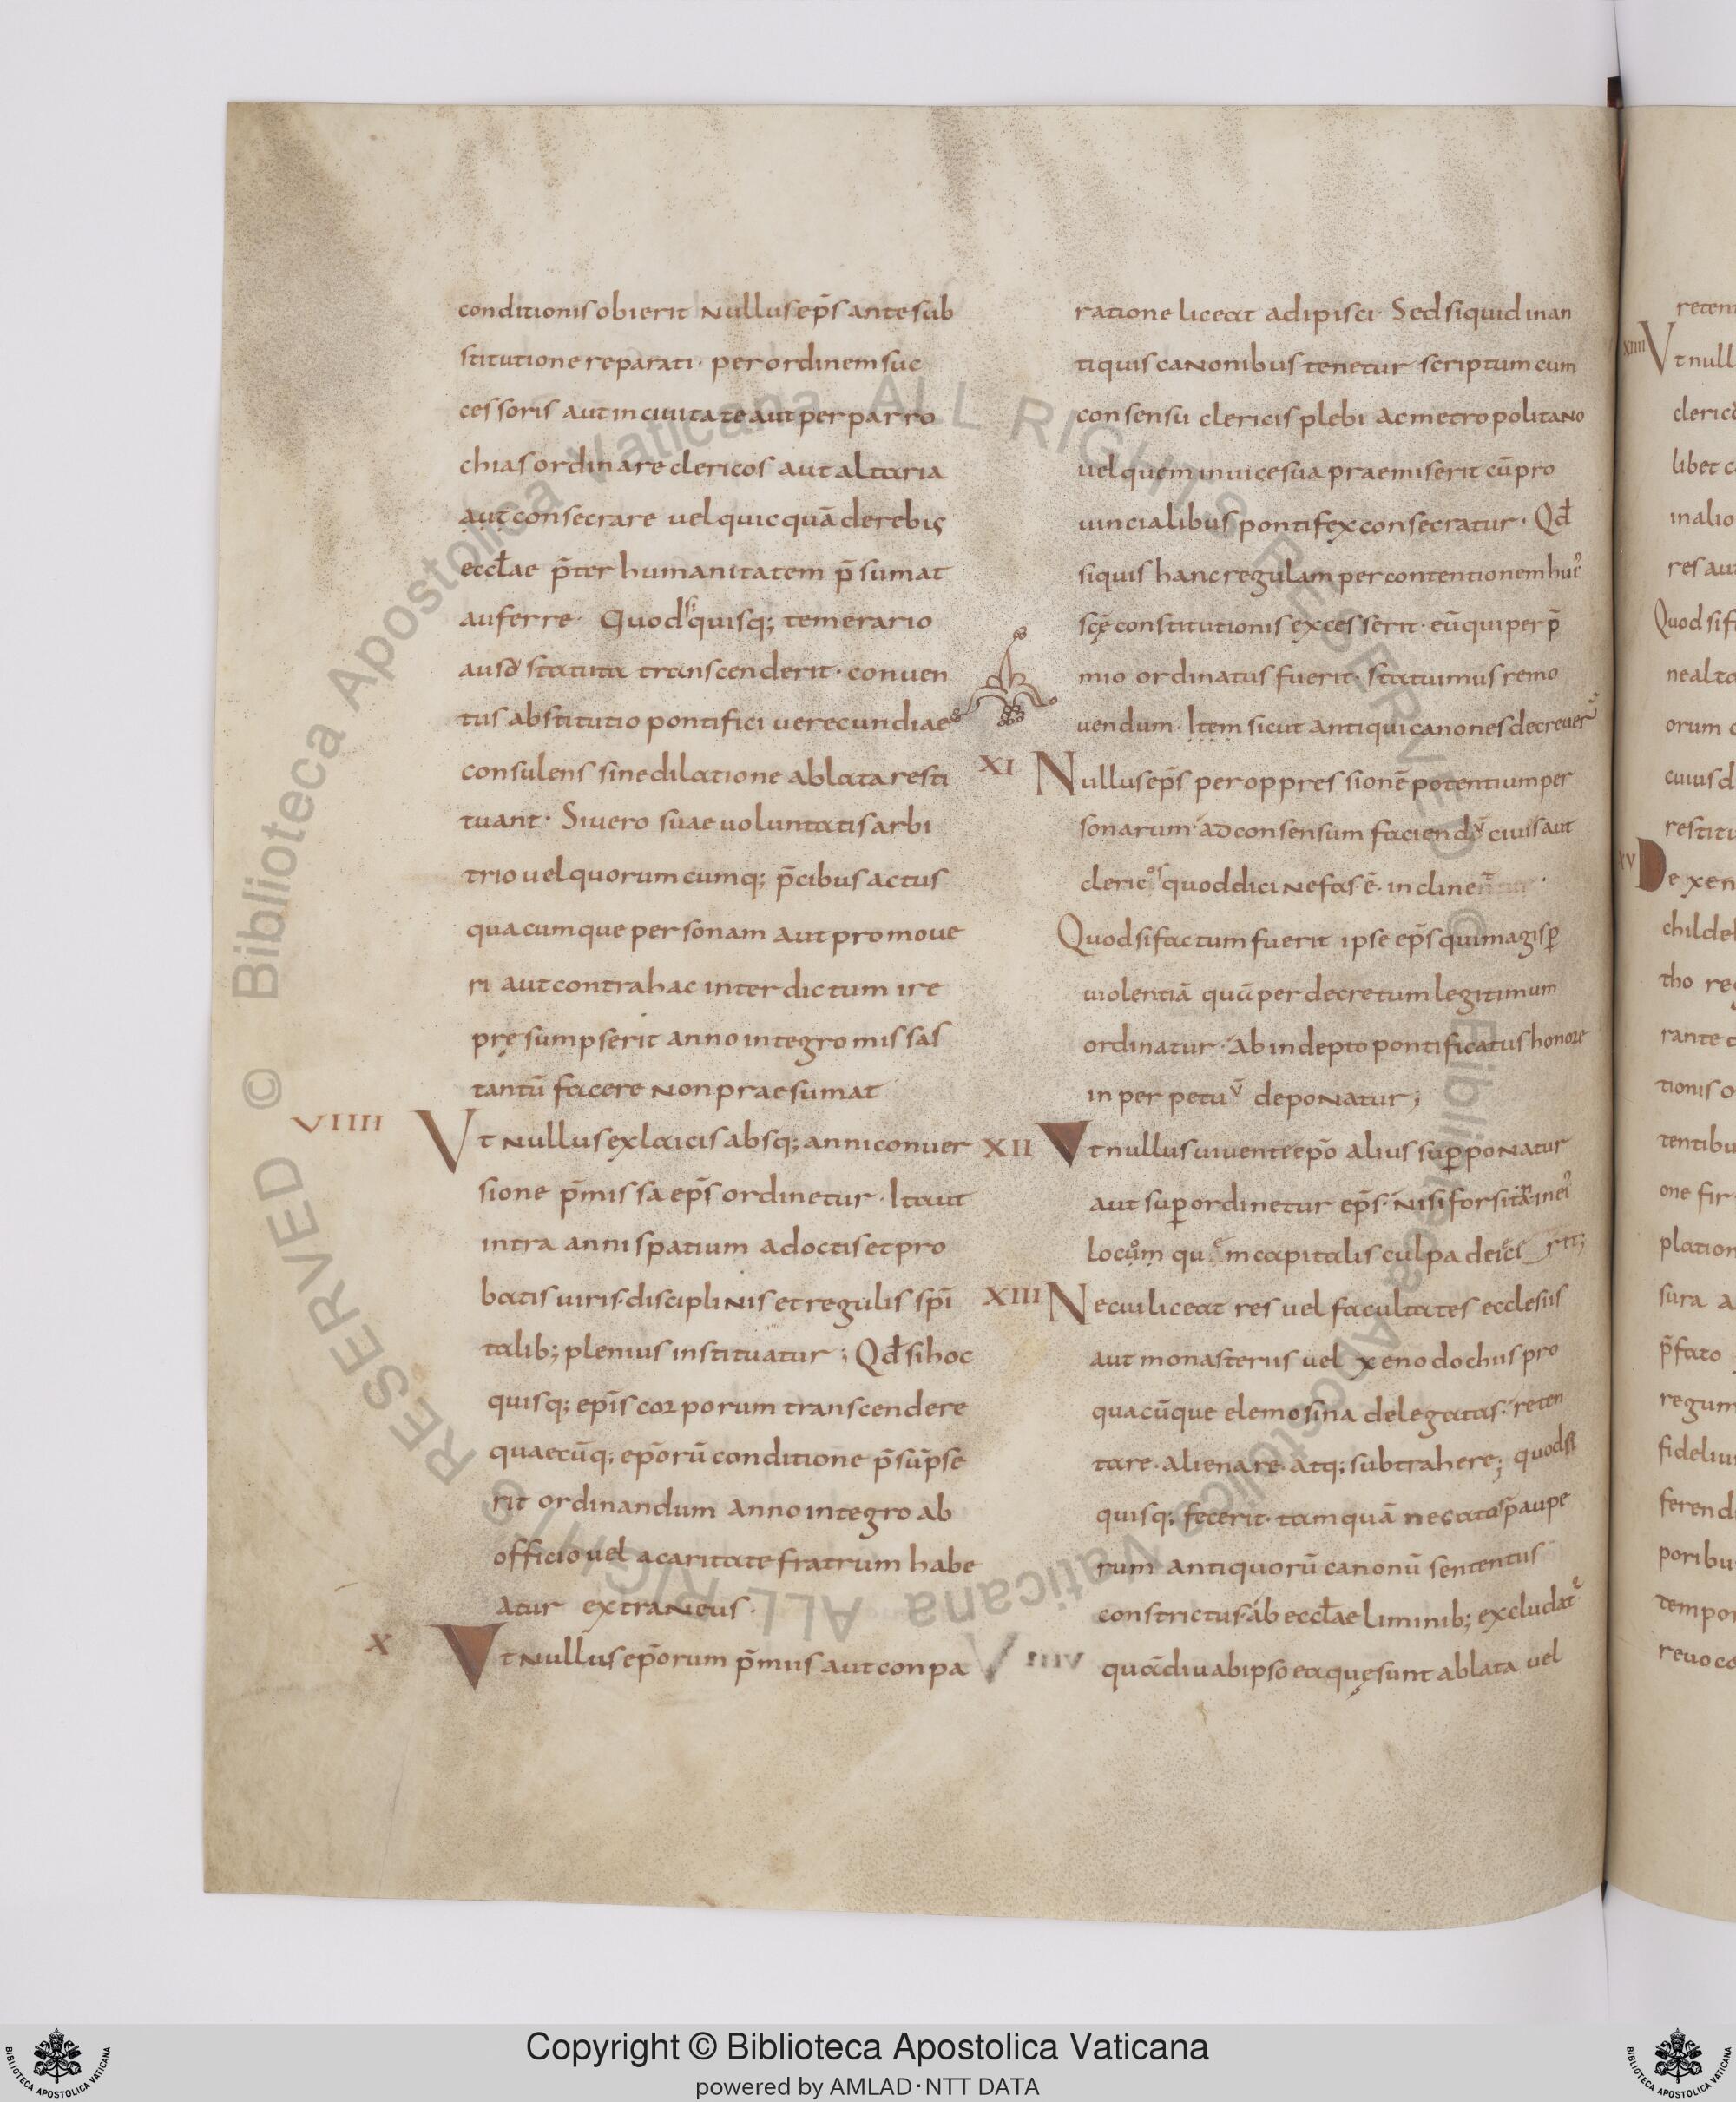 conditionis obierit Nullus ep̄s ante sub
stitutione reparati · per ordinem suc
cessoris aut in ciuitate aut per parro
chias ordinare clericos aut altaria
aut consecrare uel quicquā de rebis
eccłae p̄ter humanitatem p̄sumat
auferre · Quod si quisq; temerario
statuta transcenderit · conuen
tus abstitutio pontifici uerecundiae
consulens sine dilatione ablata resti
tuant · Si uero suae uoluntatis arbi
trio uel quorumcumq; p̄cibus actus
quacumque personam aut promoue
ri aut contra hac interdictum ire
pręsumpserit anno integro missas
tantū facere Non praesumat
VIIII Vt Nullus ex laicis absq; anni conuer
sione p̄missa ep̄s ordinetur · Ita ut
intra anni spatium a doctis et pro
batis uiris · disciplinis et regulis sp̄i
talib; plenius instituatur ; Qđ si hoc
quisq; ep̄iscorporum transcendere
quaecūq; ep̄orū conditione p̄sūpse
rit ordinandum anno integro ab
officio uel a caritate fratrum habe
atur extraneus ·
X Vt Nullus ep̄orum p̄miis aut conpa
ratione liceat adipisci · Sed si quid in an
tiquis caNonibus tenetur scriptum cum
consensu clericis plebi ac metropolitaNo
uel quem in uice sua praemiserit cū pro
uincialibus pontifex consecratur · Qđ
si quis hanc regulam per contentionem
scę constitutionis excesserit · eū qui per p̄
mio ordinatus fuerit · statuimus remo
uendum · Item sicut antiqui canones decreuer
XI Nullus ep̄s per oppressionē potentium per
sonarum · ad consensum faciend ciuis aut
cleric quod dici Nefas ē · incline
Quod si factum fuerit ipse ep̄s qui magis ꝑ
uiolentiā quā per decretum legitimum
ordinatur · Ab indepto pontificatus honore
in perpetu depoNatur ;
XII Vt nullus uiuente ep̄o alius suꝑpoNatur
aut suꝑordinetur ep̄s · Nisi forsitan in ei
capitalis culpa
XIII Ne cui liceat res uel facultates ecclesiis
aut monasteriis uel xenodochiis pro
quacūque elemosina delegatas · reten
tare · alienare · atq; subtrahere ; quod si
quisq; fecerit · tamquā paupe
rum antiquorū canonū sententiis
constrictus · ab eccłae liminib; excludat
quādiu ab ipso ea quę sunt ablata uel
VIIII
retem
XIIII Vt null
cleric
libet c
in alio
res au
Quod si f
ne alta
orum c
cuius d
restitu
XV De xen
childe
tho re
rante
tionis
tentibu
one fir
plation
sura a
p̄fato
regum
fideliu
ferend
poribu
tempor
reuoca
© Biblioteca Apostolica Vaticana ALL RIGHTS RESERVED © Biblioteca Apostolica Vaticana ALL RIGHTS RESERVED
BIBLIOTECA APOSTOLICA VATICANA
Copyright © Biblioteca Apostolica Vaticana
powered by AMLAD·NTT DATA
BIBLIOTECA APOSTOLICA VATICANA